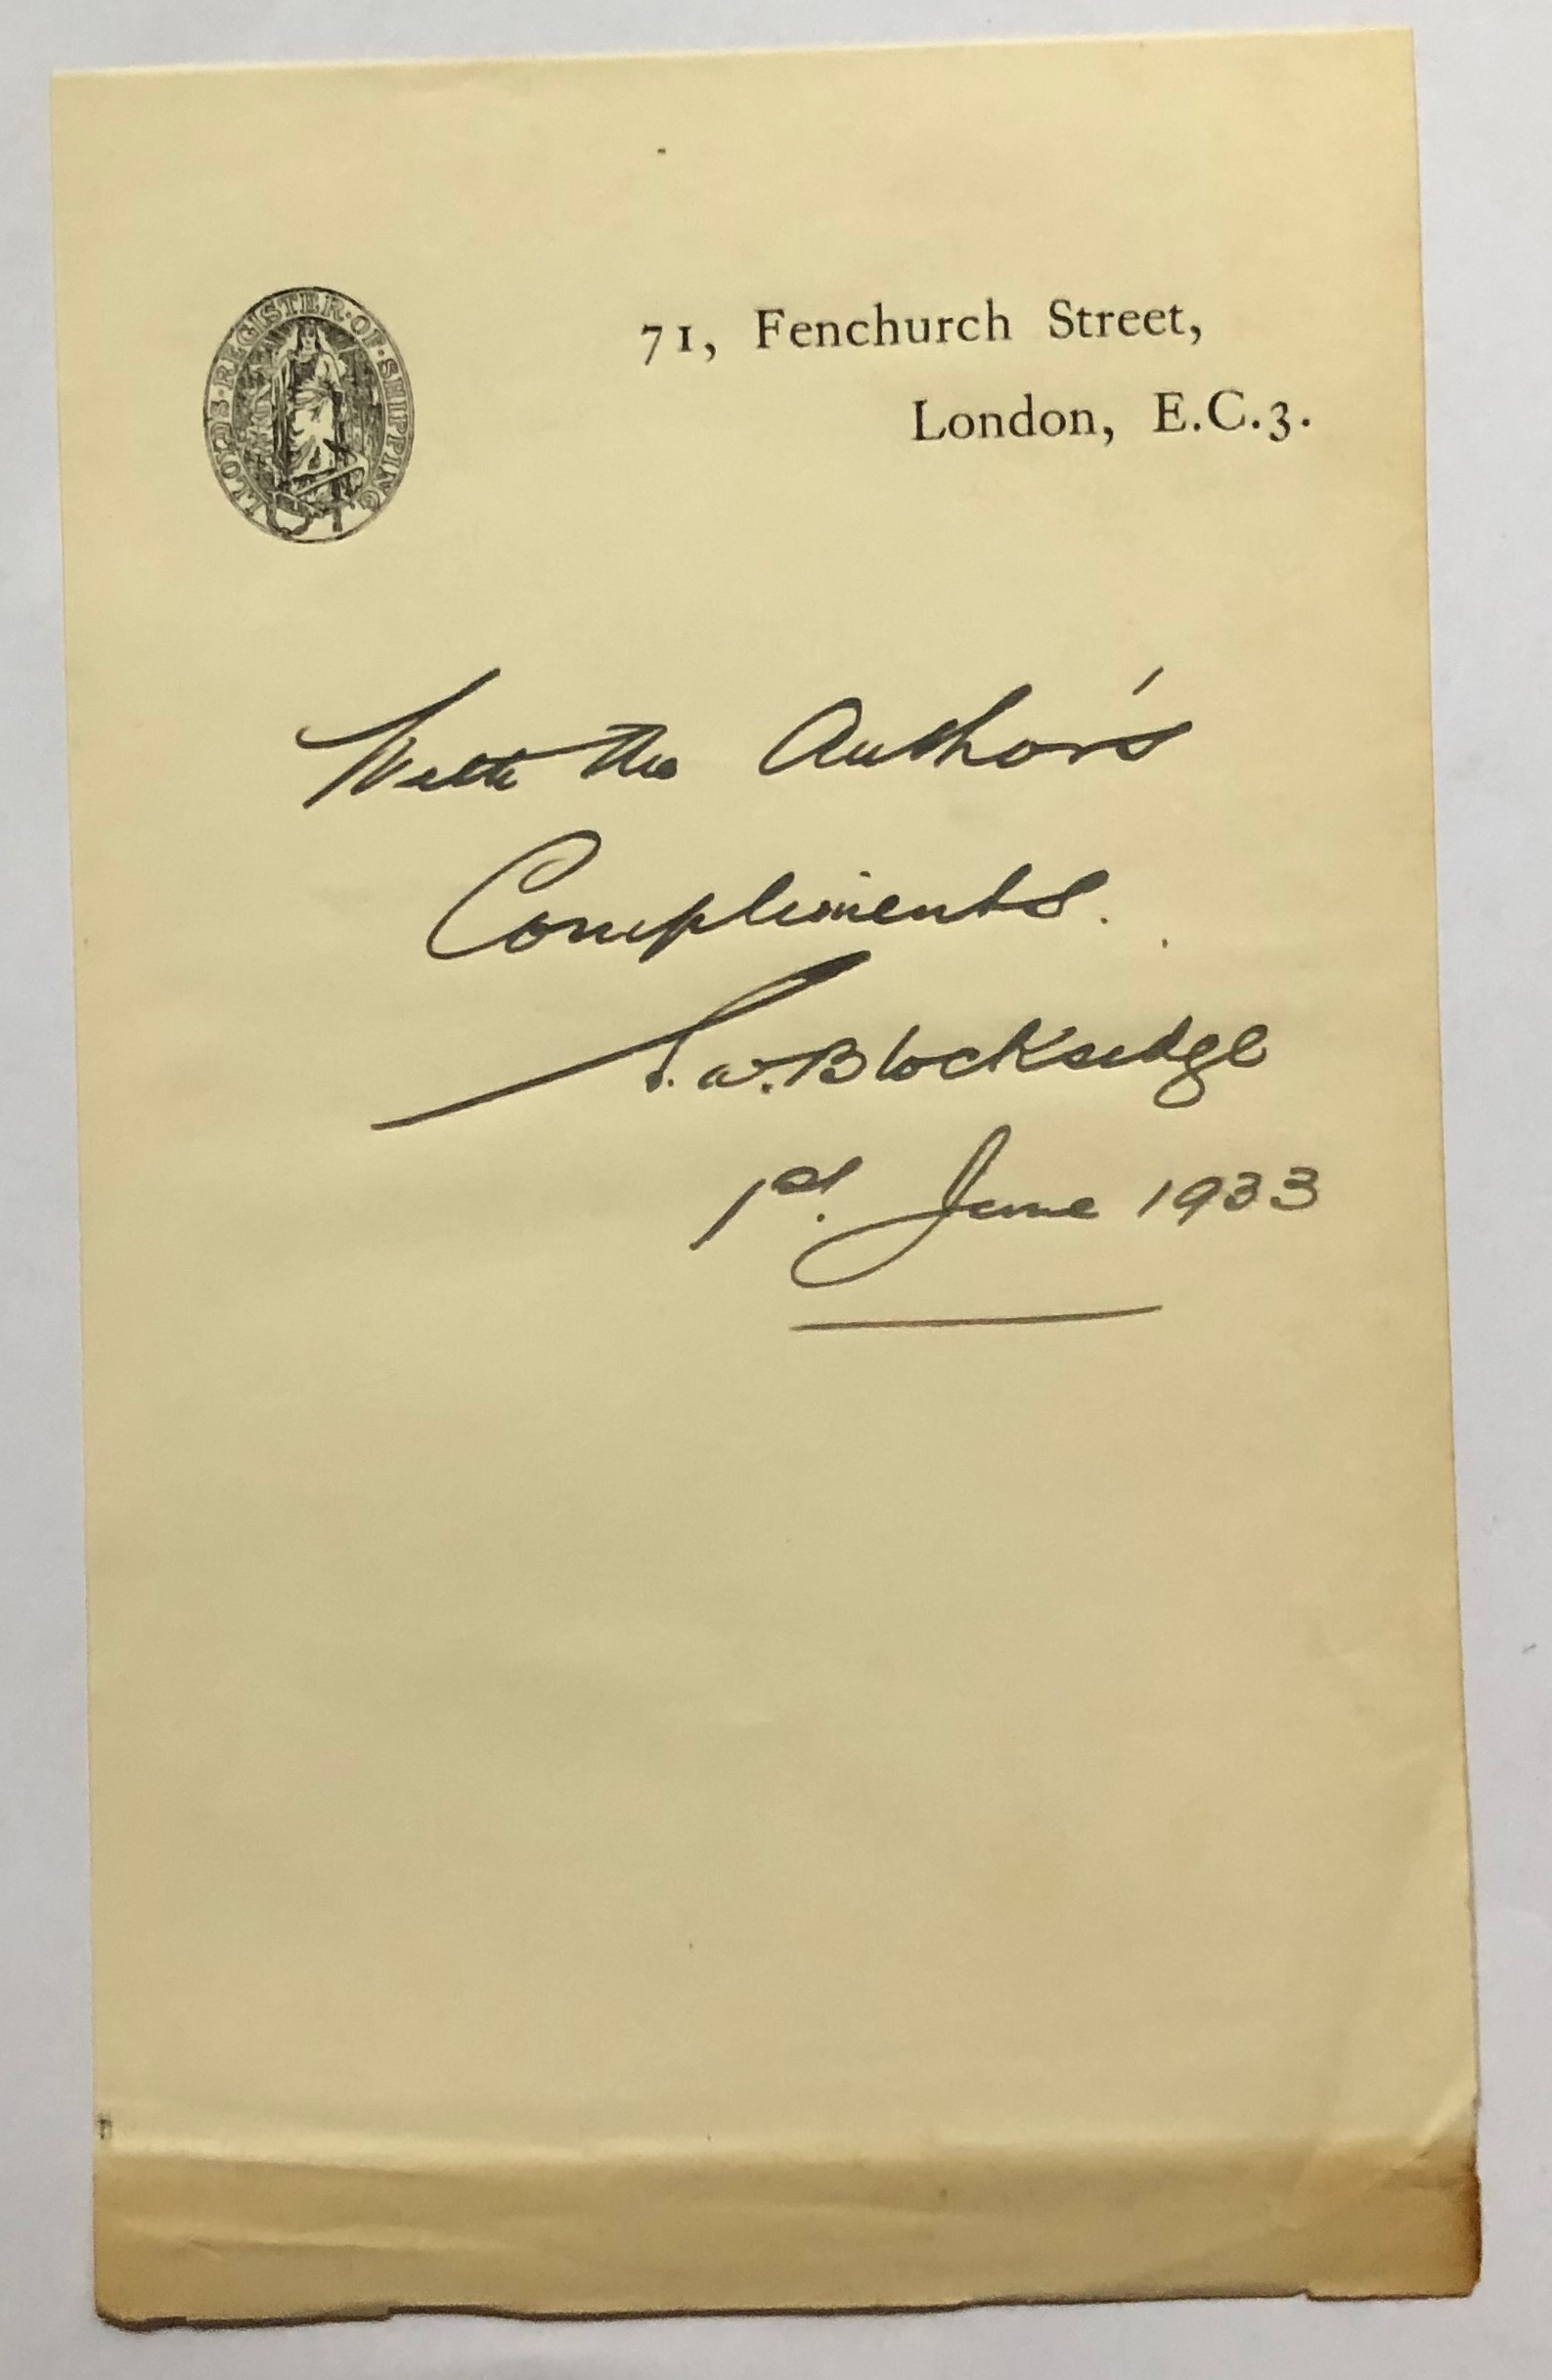 LLOYD'S·REGISTER·OF·SHIPPING
71, Fenchurch Street,
London, E.C.3.
With the Author's
Compliments.
W. Blocksidge
1st. June 1933